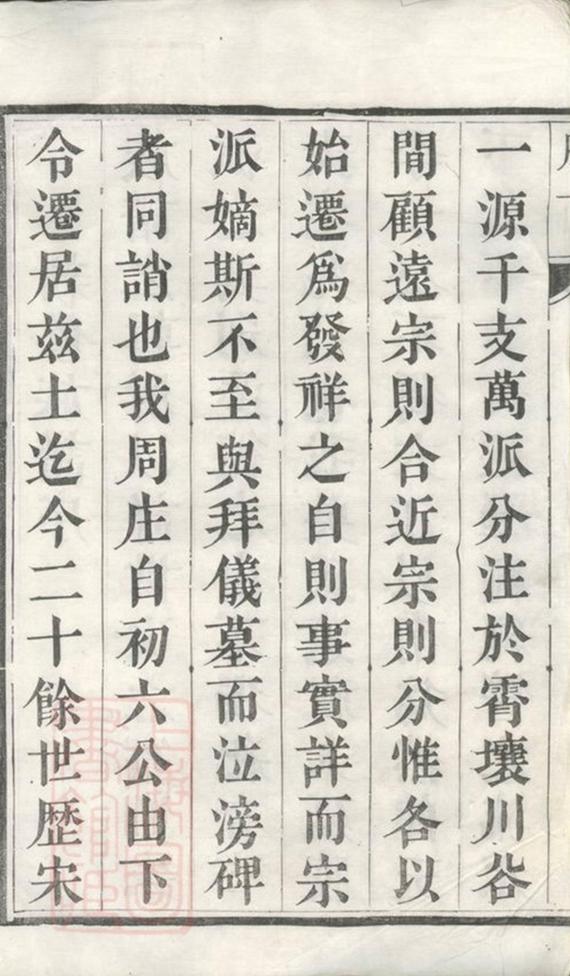 一源千支萬派分注於霄壤川谷
間顧遠宗則合近宗則分惟各以
始遷為發祥之自則事實詳而宗
派嫡斯不至與拜儀墓而泣滂碑
者同誚也我周庄自初六公由下
令遷居茲土迄今二十餘世歷宋